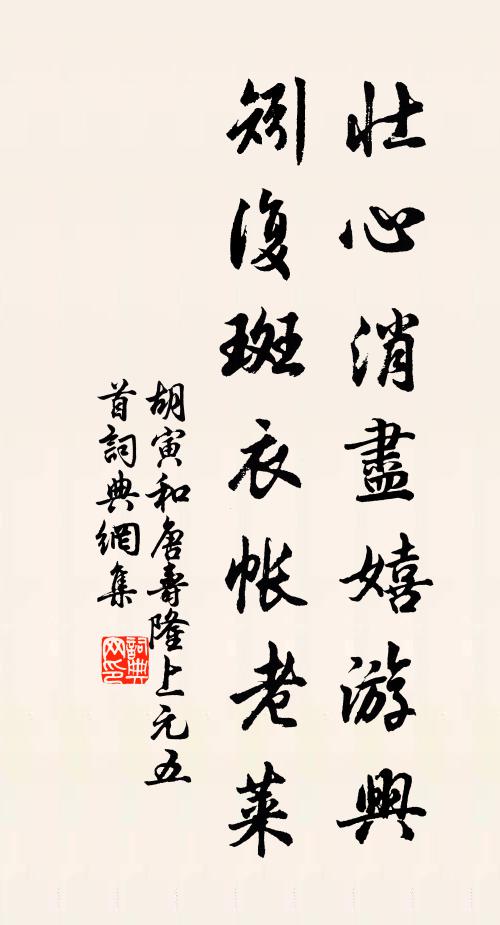 壮心消盡嬉游興
矧復斑衣帐老萊
胡寅和唐壽隆上元五
首詞典網集
詞典
网印